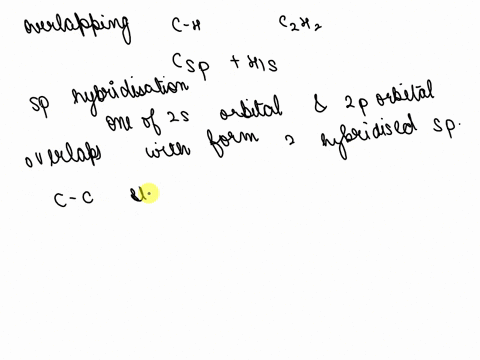 overlapping C-H C2H2
Csp + H1s
sp hybridisation
one of 2s orbital & 2p orbital
overlaps with form 2 hybridised sp.
C-C